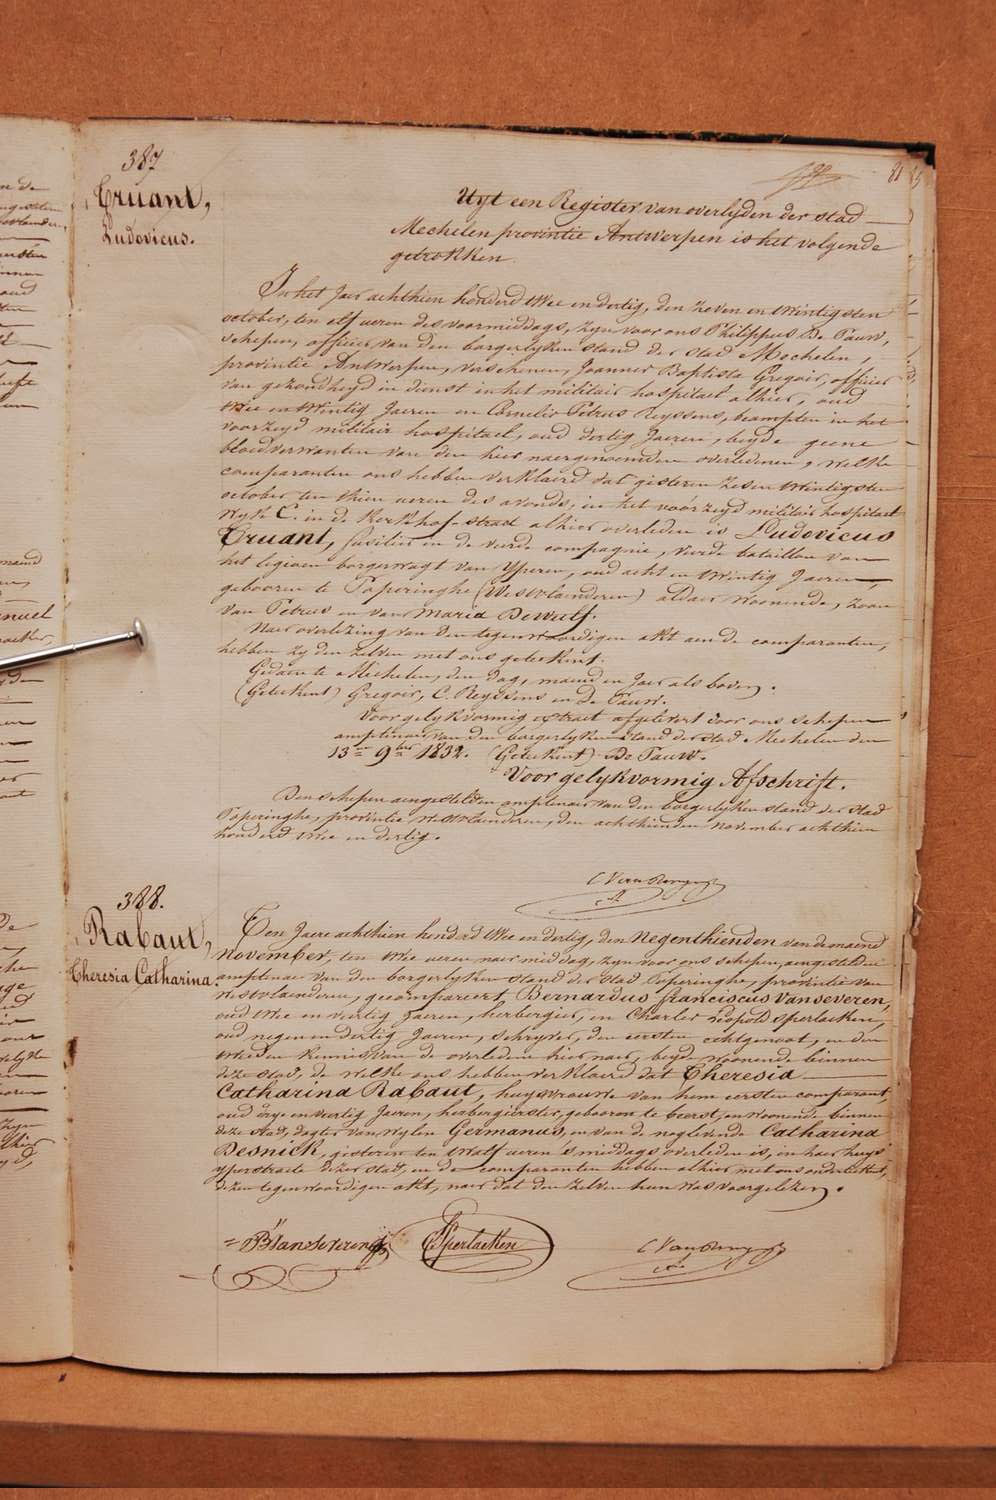 81
387
Truant,
Ludovicus.
Uyt een Register van overlyden der stad
Mechelen provintie Antwerpen is het volgende
getrokken.
In het Jaer achthien honderd twee en dertig, den zeven en twintigsten
october, ten elf ueren des voormiddags, zyn voor ons Philippus De Pauw,
schepen, officier van den borgerlyken stand der stad Mechelen,
provintie Antwerpen, verschenen, Joannes Baptista Gregoir, officier
van gezondheyd in dienst in het militair hospitael alhier, oud
twee en twintig Jaeren en Cornelis Petrus Reyssens, beampten in het
voorzeyd militair hospitael, oud dertig Jaeren, beyde geene
bloedverwanten van den hier naergenoemden overledenen, welke
comparanten ons hebben verklaerd dat gisteren zesen twintigsten
october ten thien ueren des avonds, in het voorzeyd militair hospitael
wyk C. in de Kerkhof-straet alhier overleden is Ludovicus
Truant, fusilier in de vierde compagnie, vierde bataillon van
het legioen borgerwagt van Yperen, oud acht en twintig Jaeren,
gebooren te Poperinghe (Westvlaenderen) aldaer woonende, zoon
van Petrus en van Maria Dewulf.
Naer overlezing van den tegenwoordigen akt aen de comparanten,
hebben zy den zelven met ons geteekent.
Gedaen te Mechelen, den dag, maend en Jaer als boven.
(Geteekent) Gregoir, C. Reyssens en de Pauw.
Voor gelykvormig extract afgelevert door ons schepen
amptenaer van den borgerlyken stand der stad Mechelen den
13en 9ber 1832. (Geteekent) De Pauw.
Voor gelykvormig Afschrift.
Den schepen aengestelden amptenaer van den borgerlyken stand der stad
Poperinghe, provintie westvlaenderen, den achthienden november achthien
honderd twee en dertig.
388.
Rabaut,
Theresia Catharina.
Den Jaere achthien honderd twee en dertig, den negenthienden van de maend
November, ten twee ueren naer middag, zyn voor ons schepen, aengestelden
amptenaer van den borgerlyken stand der stad Poperinghe, provintie van
westvlaenderen, gecompareert Bernardus franciscus Vanseveren,
oud twee en veertig Jaeren, herbergier, en Charles Leopold Sperlaeken,
oud negen en dertig Jaeren, schryver, den eersten echtgenoot, en den
tweeden kennis van de overledene hier naer, beyde woonende binnen
deze stad, de welke ons hebben verklaerd dat Theresia
Catharina Rabaut, huysvrouwe van hem eersten comparant,
oud drye en veertig Jaeren, herbergierster, gebooren te beerst, en woonende binnen
deze stad, dogter van wylen Germanus, en van de noglevende Catharina
Desnick, gisteren ten twalf ueren s'middags overleden is, in haer huys
yperstraete dezer stad, en de comparanten hebben alhier met ons onderteekent,
dezen tegenwoordigen akt, naer dat den zelven hun was voorgelezen.
B. Vanseveren
Sperlaeken